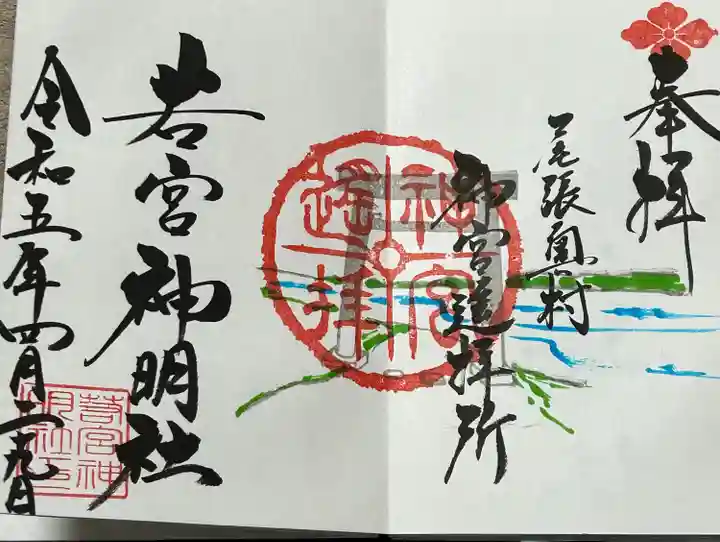 奉拝
尾張鳳村
神宮遥拝所
神宮
遥拝
若宮神明社
若宮神
明社印
令和五年四月二九日